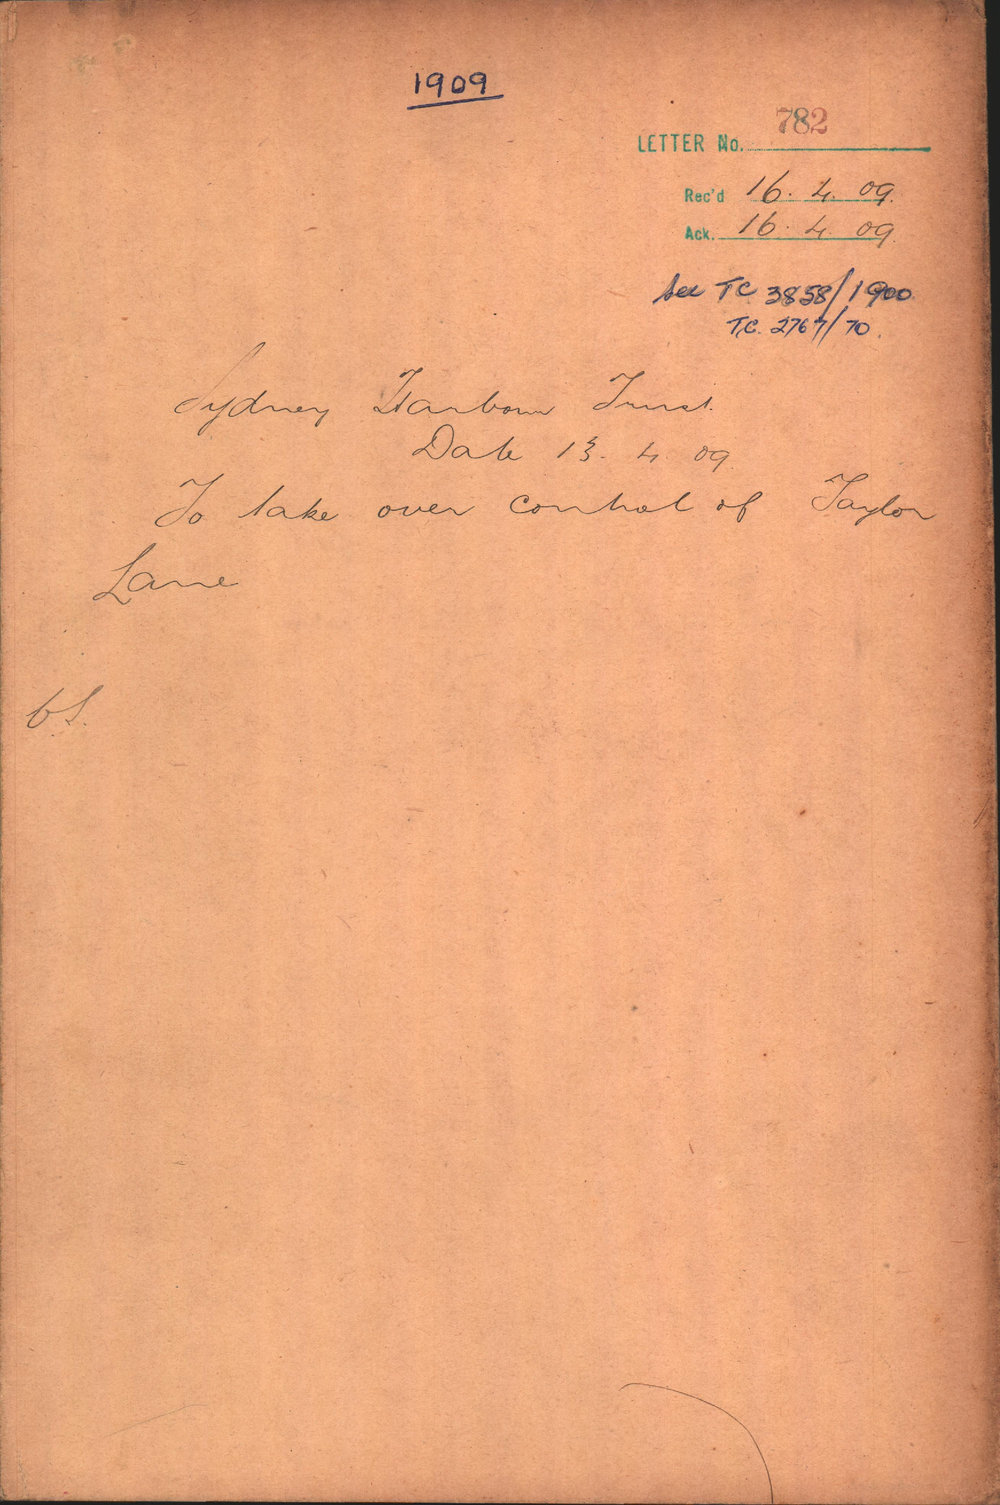 1909
LETTER No. 782
Rec'd 16. 4. 09.
Ack. 16. 4. 09.
See TC 3858/1900
T.C. 2767/70.
Sydney Harbour Trust.
Date 13. 4 09
To take over control of Taylor
Lane